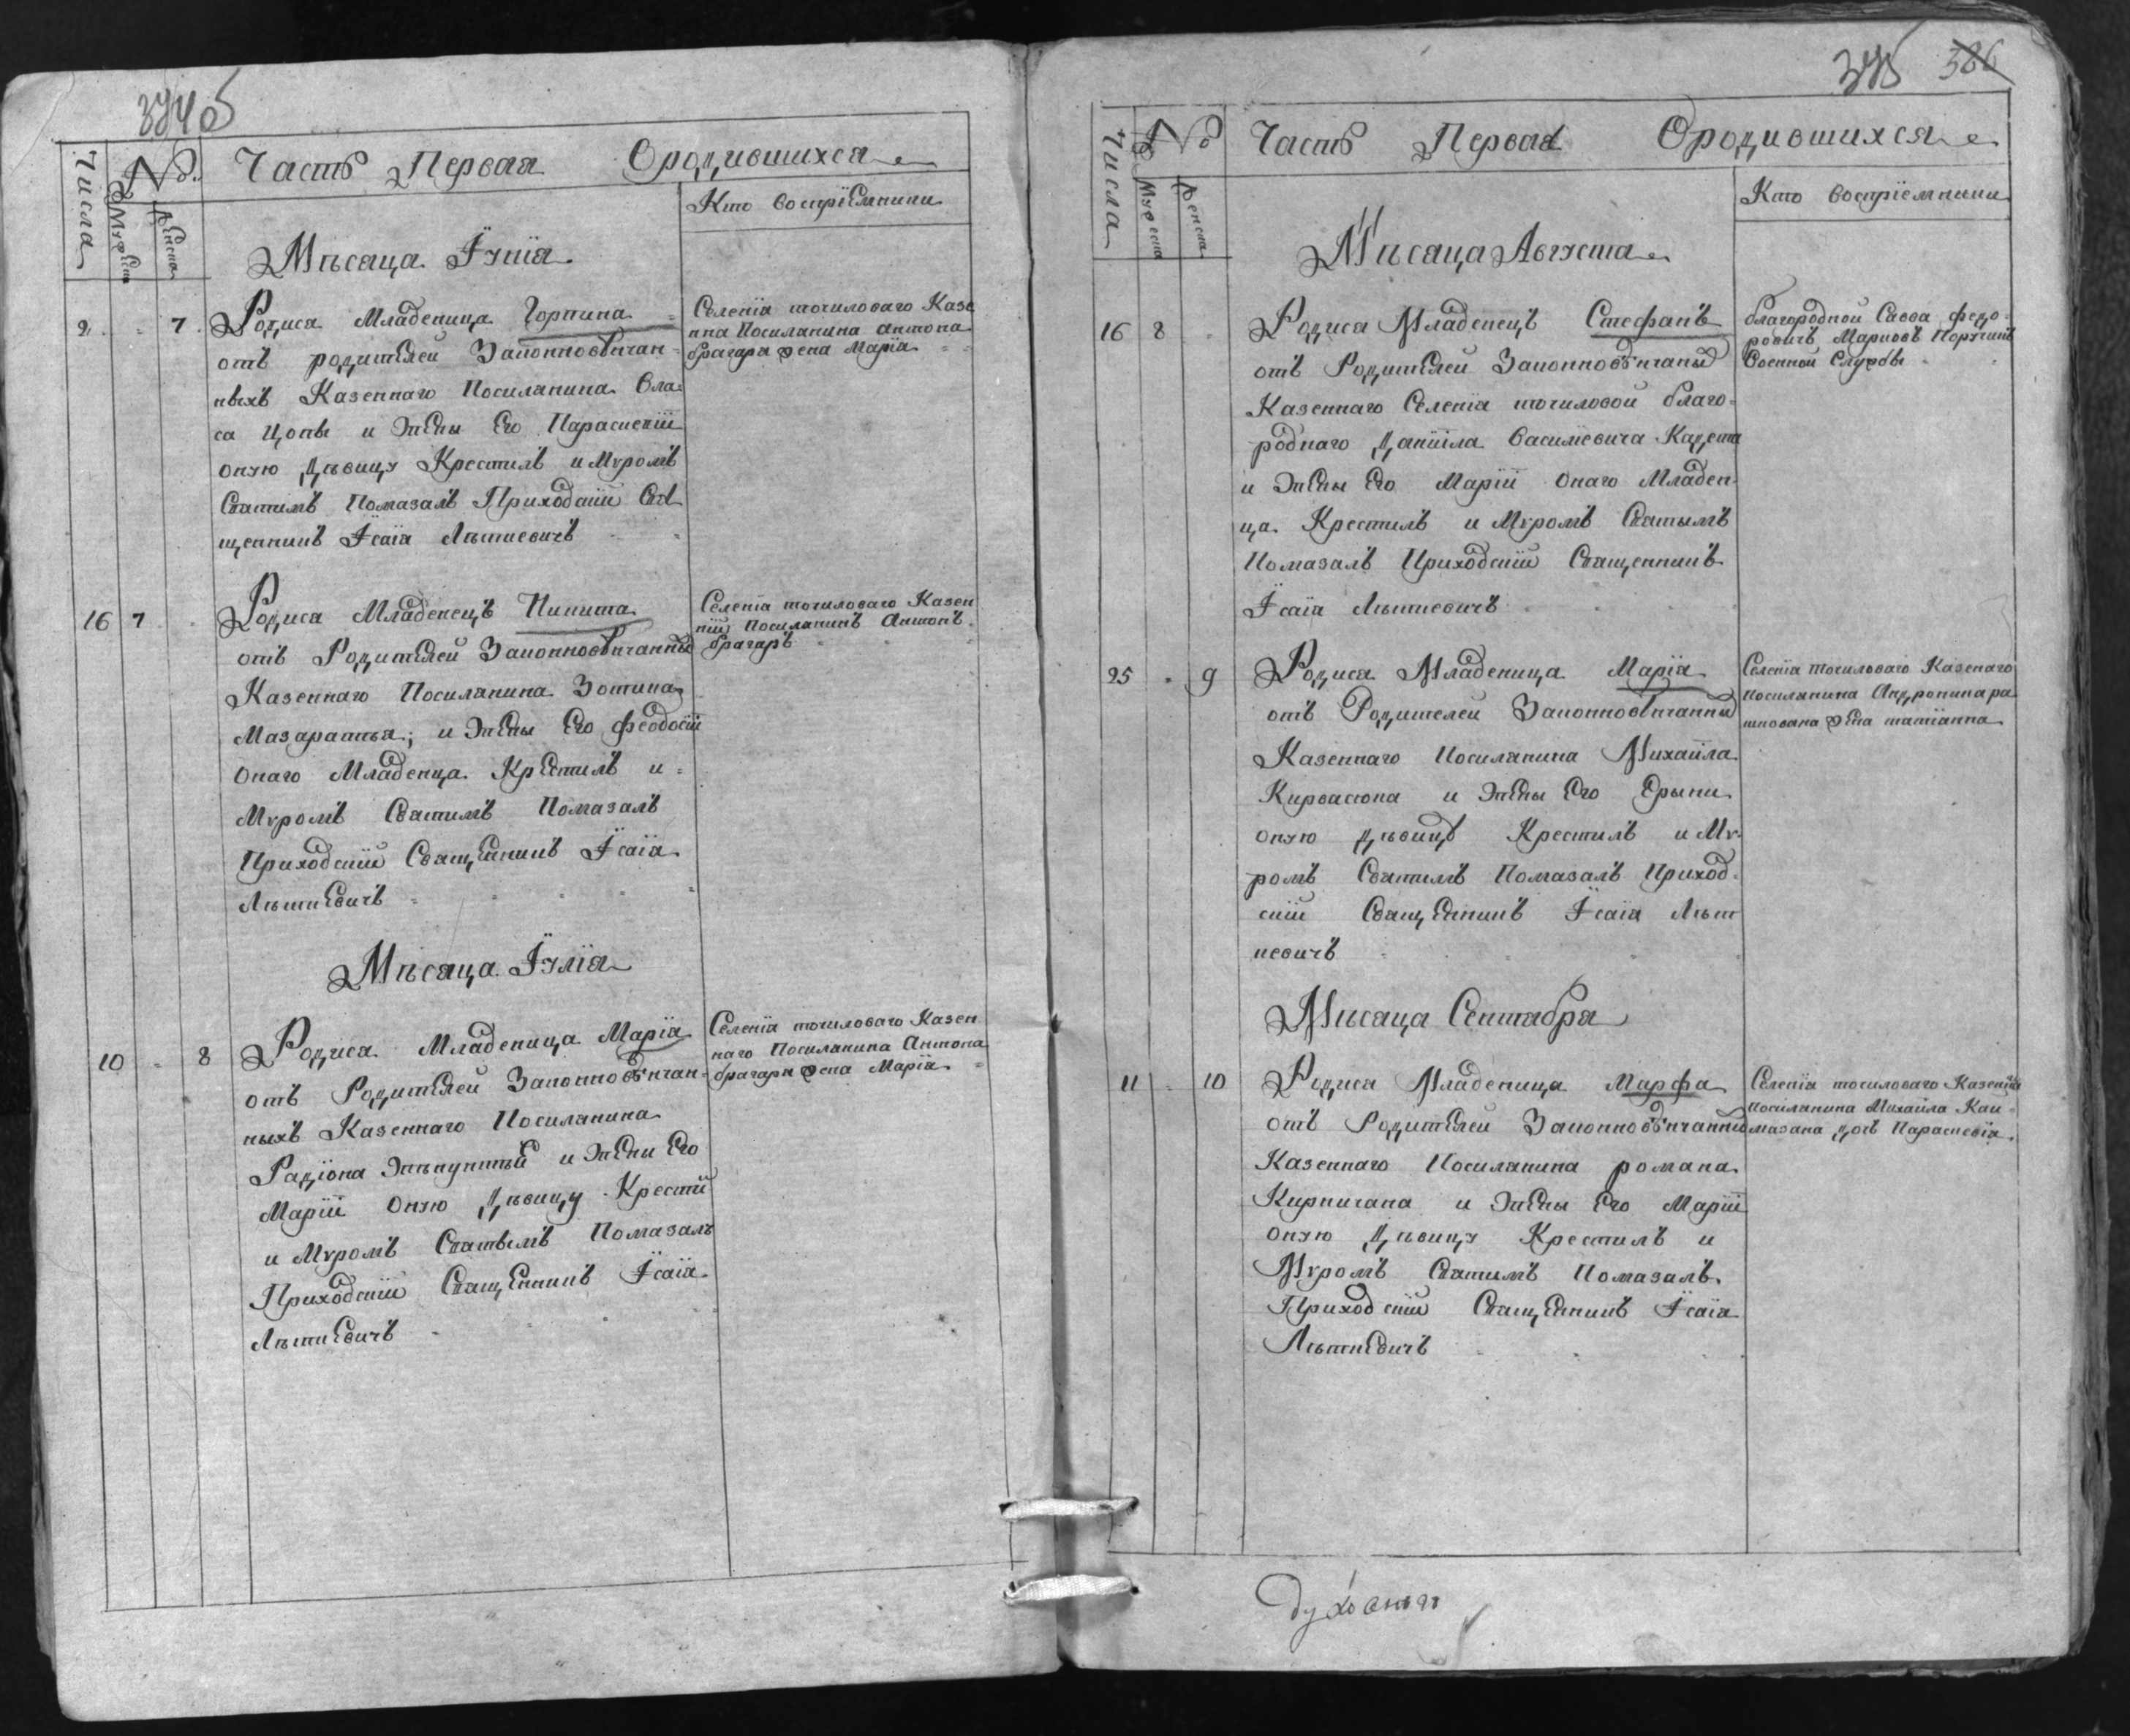 374 об
Числа
№
Мужеска
Женска
Часть Первая О родившихся
Кто воспріемники
Мѣсаца Іунїа
2 7
Родиса Младеница Гортина
отъ родителей Законновѣнчан
ныхъ Казеннаго Посиланина Вла
са Цопы и Жены Его Параскевїи
оную Дѣвицу Крестилъ и Мѵромъ
Сватимъ Помазалъ Приходскїй Сва
щенникъ Їсаїа Лѣткевичъ
Селенїа точиловаго Казе
нна Посиланина антона
брагара жена Марїа
16 7
Родиса Младенецъ Никита
отъ Родителей Законновѣнчанны
Казеннаго Посиланина Зотика
Мазаратїа; и Жены Его Феодосїи
онаго Младенца Крестилъ и
Мѵромъ Сватимъ Помазалъ
Приходскїй Сващенникъ Їсаїа
Лѣткевичъ
Селенїа точиловаго Казен
нїй Посиланинъ Антонъ
брагаръ
Мѣсаца Їулїа
10 8
Родиса Младеница Марїа
отъ Родителей Законновѣнчан
ныхъ Казеннаго Посиланина
Радїона и Жени Его
Марїи оную Дѣвицу Крести
и Мѵромъ Сватымъ Помазалъ
Приходскїй Сващенникъ Їсаїа
Лѣткевичъ
Селенїа точиловаго Казен
наго Посиланина Антона
брагара жена Марїа
375 386
Числа
№
Мужеска
Женска
Часть Первая О родившихся
Кто воспріемники
Мѣсаца Августа
16 8
Родиса Младенецъ Стефанъ
отъ Родителей Законновѣнчаны
Казеннаго Селенїа точиловой благо
роднаго Данїила Василїевича Кадета
и Жены Его Марїи Онаго Младен
ца Крестилъ и Мѵромъ Сватымъ
Помазалъ Приходскїй Сващенникъ
Їсаїа Лѣткевичъ
благородной Савва Федо
ровичъ Марковъ Поручикъ
Военной Службы
25 9
Родиса Младеница Марїа
отъ Родителей Законновѣнчанны
Казеннаго Посиланина Михайла
Кирвасюка и Жены Его Ерыни
оную дѣвицу Крестилъ и Мѵ
ромъ Сватимъ Помазалъ Приход
скїй Сващенникъ Їсаїа Лѣт
кевичъ
Селенїа точиловаго Казенаго
Посиланина Андроника ра
шкована жена татїанна
Мѣсаца Септабра
11 10
Родиса Младеница Марфа
отъ Родителей Законновѣнчанны
Казеннаго Посиланина романа
Кирничана и Жены Его Марїи
оную Дѣвицу Крестилъ и
Мѵромъ Сватимъ Помазалъ
Приходскїй Сващенникъ Їсаїа
Лѣткевичъ
Селенїа точиловаго Казенїа
Посиланина Михайла Кай
мазана дочъ Параскевїа